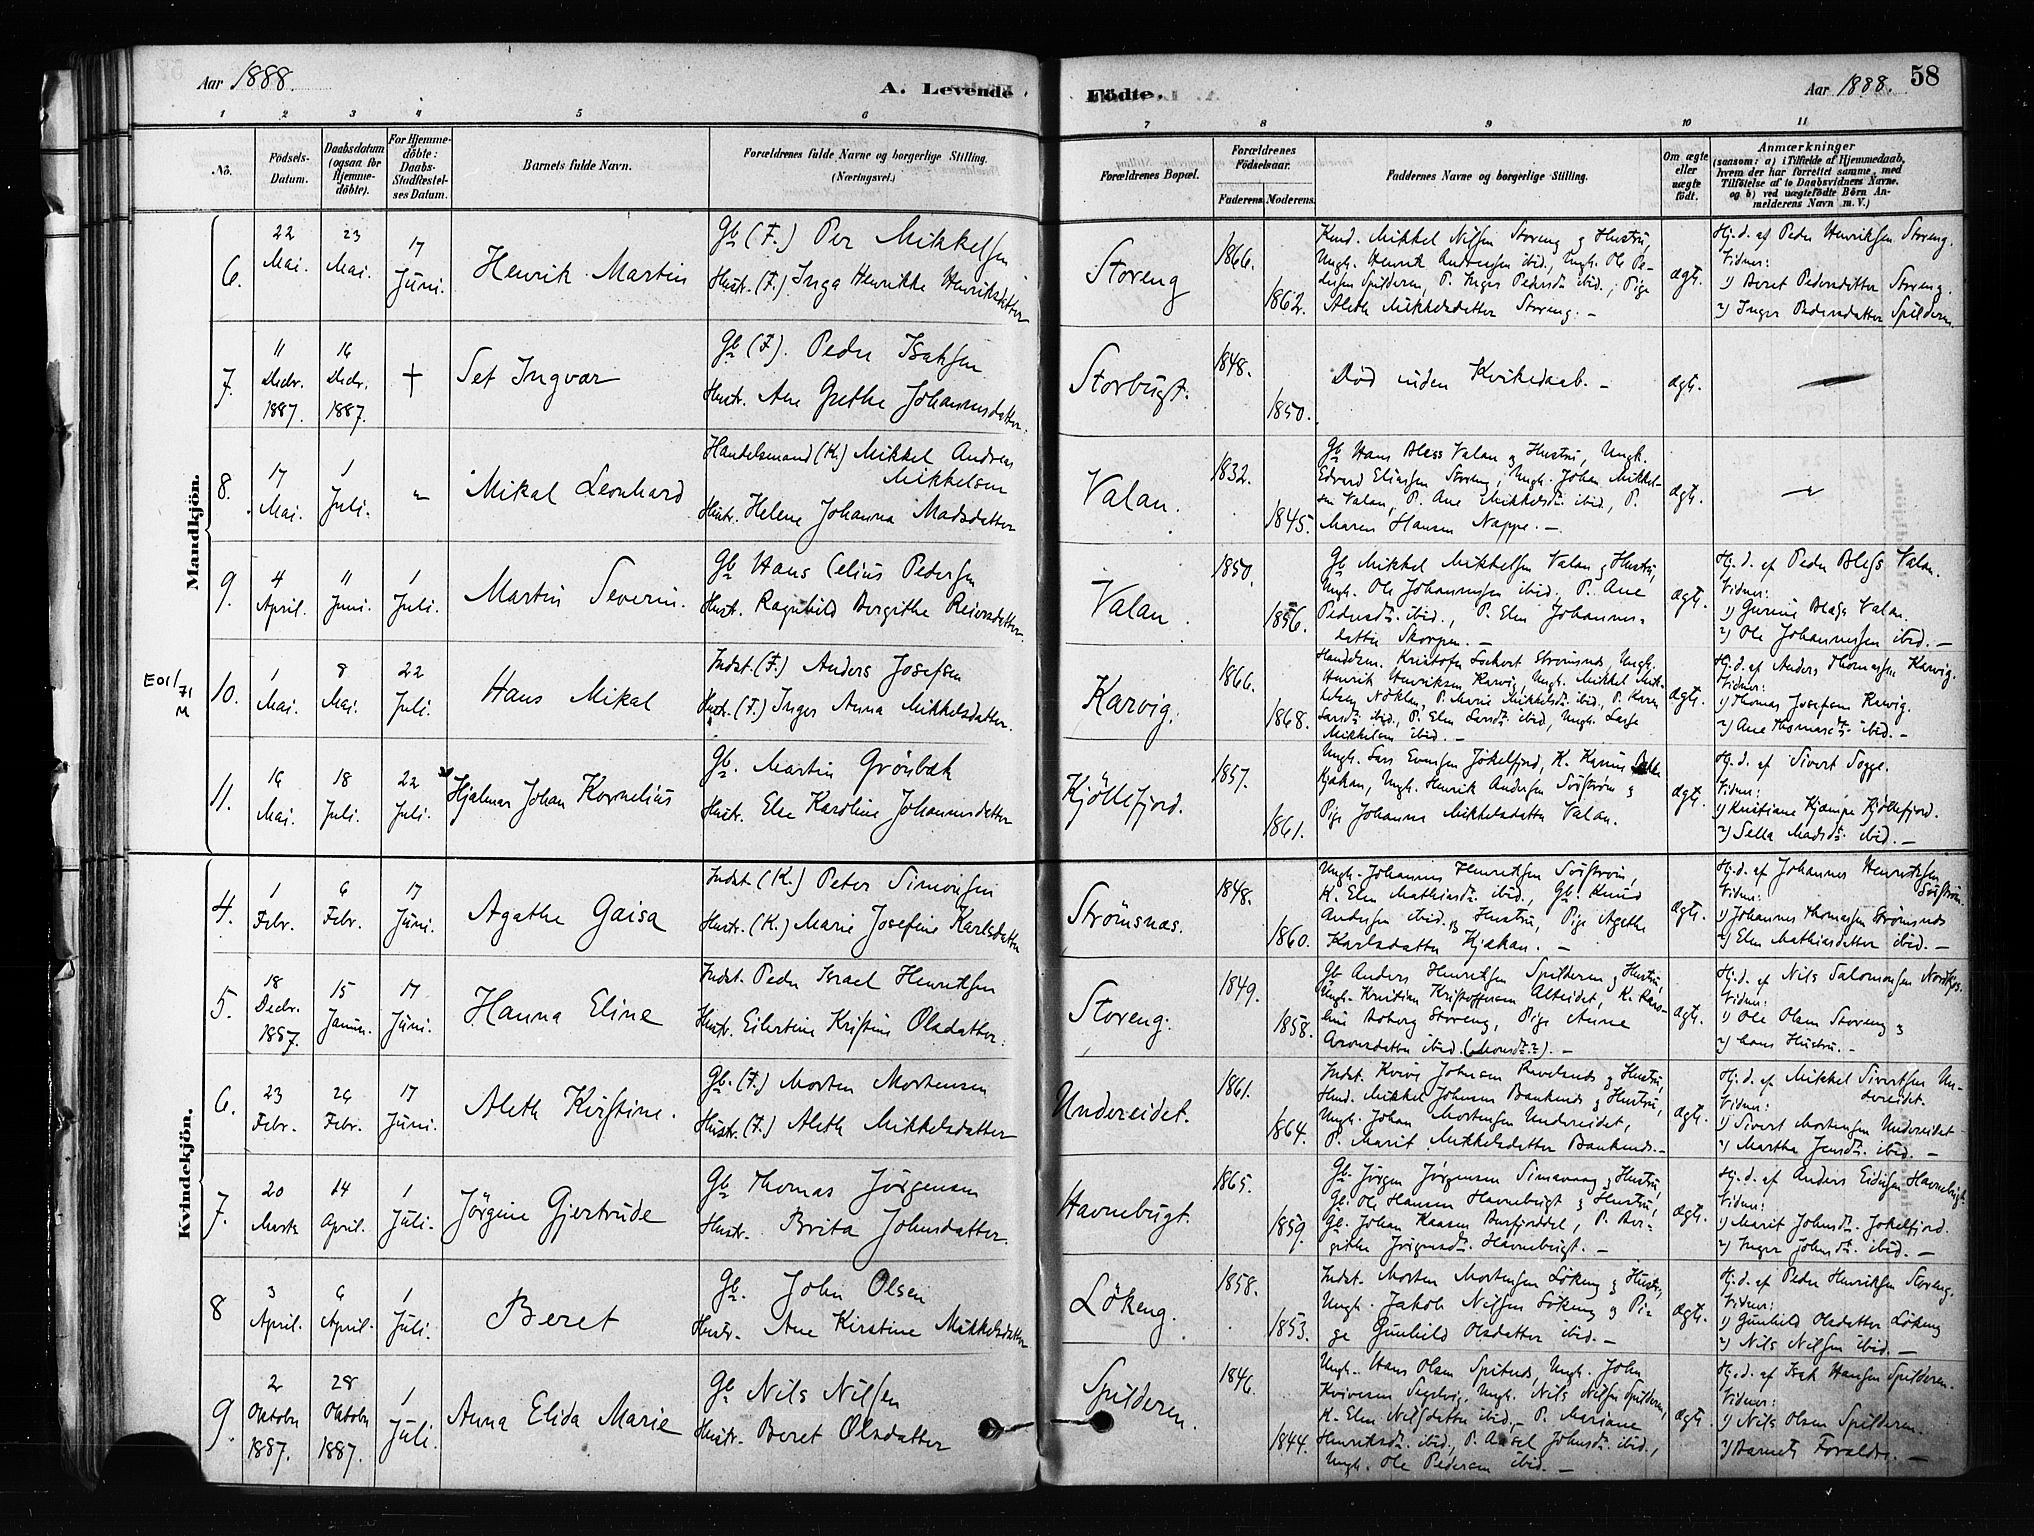 Aar 1888.
A. Levende
Födte.
Aar 1888.
58
1 2 3 4 5 6 7 8 9 10 11
No.
Födsels-Datum.
Daabsdatum (ogsaa for Hjemme-döbte).
For Hjemme-döbte: Daabs-Stadfæstel-ses Datum.
Barnets fulde Navn.
Forældrenes fulde Navne og borgerlige Stilling. (Næringsvei.)
Forældrenes Bopæl.
Forældrenes Födselsaar.
Faderens. Moderens.
Faddernes Navne og borgerlige Stilling.
Om ægte eller uægte födt.
Anmærkninger
(saasom: a) i Tilfælde af Hjemmedaab,
hvem der har forrettet samme, med
Tilföielse af to Daabsvidners Navne,
og b) ved uægtefödte Börn An-
melderens Navn m. V.)
Mandkjön.
6. 22 Mai. 23 Mai. 17 Juni. Henrik Martin
Gb (F.) Per Mikkelsen
Hustr. (F.) Inga Henrikke Henriksdatter
Storeng 1866. 1862.
Mikkel Nilsen Storeng og Hustru,
Ungk. Henrik Andreassen ibid., Ungk. Ole Pe-
dersen Spilderen, P. Inger Pedersdr ibid., Pige
Aleth Mikkelsdatter Storeng. –
ægt.
Hj. d. af Peder Henriksen Storeng.
Vidner:
1) Beret Pedersdatter Storeng.
2) Inger Pedersdatter Spilderen
7. 11 Decbr. 1887. 16 Decbr. 1887. † Set Ingvar
Gb (F). Peder Isaksen
Hustr. Ane Grethe Johannesdatter.
Storbugt. 1848. 1850.
Död uden Kirkedaab. –
ægt. –
8. 17 Mai. 1 Juli. „ Mikal Leonhard
Handelsmand (K.) Mikkel Andreas
Mikkelsen
Hustr. Helene Johanna Madsdatter
Valan. 1832. 1845.
Gb Hans Bless Valan og Hustru, Ungk.
Edvard Eliassen Storeng, Ungk. Johan Mikkel-
sen Valan, P. Ane Mikkelsdr ibid., P.
Maren Hansen Nappe. –
ægt. –
9. 4 April. 11 Juni. 1 Juli. Martin Severin.
Gb Hans Celius Pedersen
Hustr. Ragnhild Bergithe Reiersdatter.
Valan. 1850. 1856.
Gb Mikkel Mikkelsen Valan og Hustru,
Ungk. Ole Johannessen ibid., P. Ane
Pedersdr ibid., P. Elen Johannes-
datter Skorpen. –
ægt.
Hj. d. af Peder Bless Valan.
Vidner:
1) Gurine Bless Valan.
2) Ole Johannessen ibid. –
E01/71 M
10. 1 Mai. 8 Mai. 22 Juli. Hans Mikal
Indst. (F.) Anders Josefsen
Hustr. (F.) Inger Anna Mikkelsdatter.
Karvig. 1866. 1868.
Handelsm. Kristofer Lockert Strömsnes, Ungk.
Henrik Henriksen Karvig, Ungk. Mikkel Mik-
kelsen Nöklan, P. Marie Mikkelsdr ibid., P. Karen
Larsdr ibid., P. Elen Larsdr ibid., Ungk. Lasse
Mikkelsen ibid. –
ægt.
Hj. d. af Anders Thomassen Karvig.
Vidner:
1) Thomas Josefsen Karvig.
2) Ane Thomasdr ibid. –
11. 16 Mai. 18 Juli. 22 Juli. Hjalmar Johan Kornelius
Gb. Martin Grönbæk
Hustr. Else Karoline Johannesdatter
Kjöllefjord. 1857. 1861.
Ungk. Lars Evensen Jökelfjord, K. Karine
Kjækan, Ungk. Henrik Andersen Sörström og
Pige Johanna Mikkelsdatter Valan.
ægt.
Hj. d. af Sivert Sogge.
Vidner:
1) Kristiane Kjempe Kjöllefjord.
2) Sella Madsdr ibid. –
Kvindekjön.
4. 1 Febr. 6 Febr. 17 Juni. Agathe Gaisa
Indst. (K.) Peter Simonsen
Hustr. (K.) Marie Josefine Karlsdatter
Strömsnas. 1848. 1860.
Ungk. Johannes Henriksen Sörström,
K. Elen Mathiasdr ibid., Gb. Knud
Andersen ibid. og Hustru, Pige Agethe
Karlsdatter Kjækan. –
ægt.
Hj. d. af Johannes Henriksen
Sörström.
Vidner:
1) Johannes Thomassen Strömsnes
2) Elen Mathiasdatter ibid. –
5. 18 Decbr. 1887. 15 Januar. 17 Juni. Hanna Eline
Indst. Peder Israel Henriksen
Hustr. Eilertine Kristine Olsdatter.
Storeng. 1849. 1858.
Gb Anders Henriksen Spilderen og Hustru,
Ungk. Kristian Kristoffersen Alteidet, K. Karo-
line Aaberg Storeng, Pige Anne
Aronsdatter ibid. (Monsdr?). –
ægt.
Hj. d. af Nils Salomonsen Nordkjos.
Vidner:
1) Ole Olsen Storeng og
2) hans Hustru. –
6. 23 Febr. 26 Febr. 17 Juni. Aleth Kirstine.
Gb. (F.) Morten Mortensen
Hustr. (F.) Aleth Mikkelsdatter
Undereidet. 1861. 1864.
Indst. Johnsen og Hustru,
Mikkel Johnsen Bankenes og Hustru,
Ungk. Johan Mortensen Undereidet,
P. Marit Mikkelsdatter Bankenes. –
ægt.
Hj. d. af Mikkel Sivertsen Un-
dereidet.
Vidner:
1) Sivert Mortensen Undereidet
2) Martha Jensdr ibid. –
7. 20 Marts 14 April. 1 Juli. Jörgine Gjertrude
Gb Thomas Jörgensen
Hustr. Brita Johnsdatter.
Havnebugt. 1865. 1859.
Gb. Jörgen Jörgensen Simavaag og Hustru,
Gb. Ole Hansen Havnebugt og Hustru,
Gb. Johan Kaasen Burfjorddal, P. Ber-
githe Jörgensdr Havnebugt. –
ægt.
Hj. d. af Anders Eidisen Havnebugt.
Vidner:
1) Marit Johnsdr Jökelfjord.
2) Inger Johnsdr ibid. –
8 3 April. 6 April. 1 Juli. Beret
Gb. John Olsen
Hustr. Ane Kirstine Mikkelsdatter
Lökeng. 1858. 1853.
Indst. Morten Mortensen Lökeng og Hustr,
Ungk. Jakob Nilsen Lökeng og Pi-
ge Gunhild Olsdatter ibid. –
ægt.
Hj. d. af Peder Henriksen Storeng.
Vidner:
1) Gunhild Olsdatter Lökeng
2) Nils Nilsen ibid. –
9. 2 Oktober 1887. 28 Oktober 1887. 1 Juli. Anna Elida Marie
Gb Nils Nilsen
Hustr. Beret Olsdatter
Spilderen. 1846. 1844.
Ungk. Hans Olsen Spilnes, Ungk. John
Ungk. Nils Nilsen Spilderen,
K. Elen Nilsdatter ibid., P. Mariane
Henriksdr ibid., P. Johnsdr ibid.,
Ungk. Ole Pedersen ibid. –
ægt.
Hj. d. af Isak Hansen Spilderen.
Vidner:
1) Nils Olsen Spilderen.
2) Barnets Forældre. –